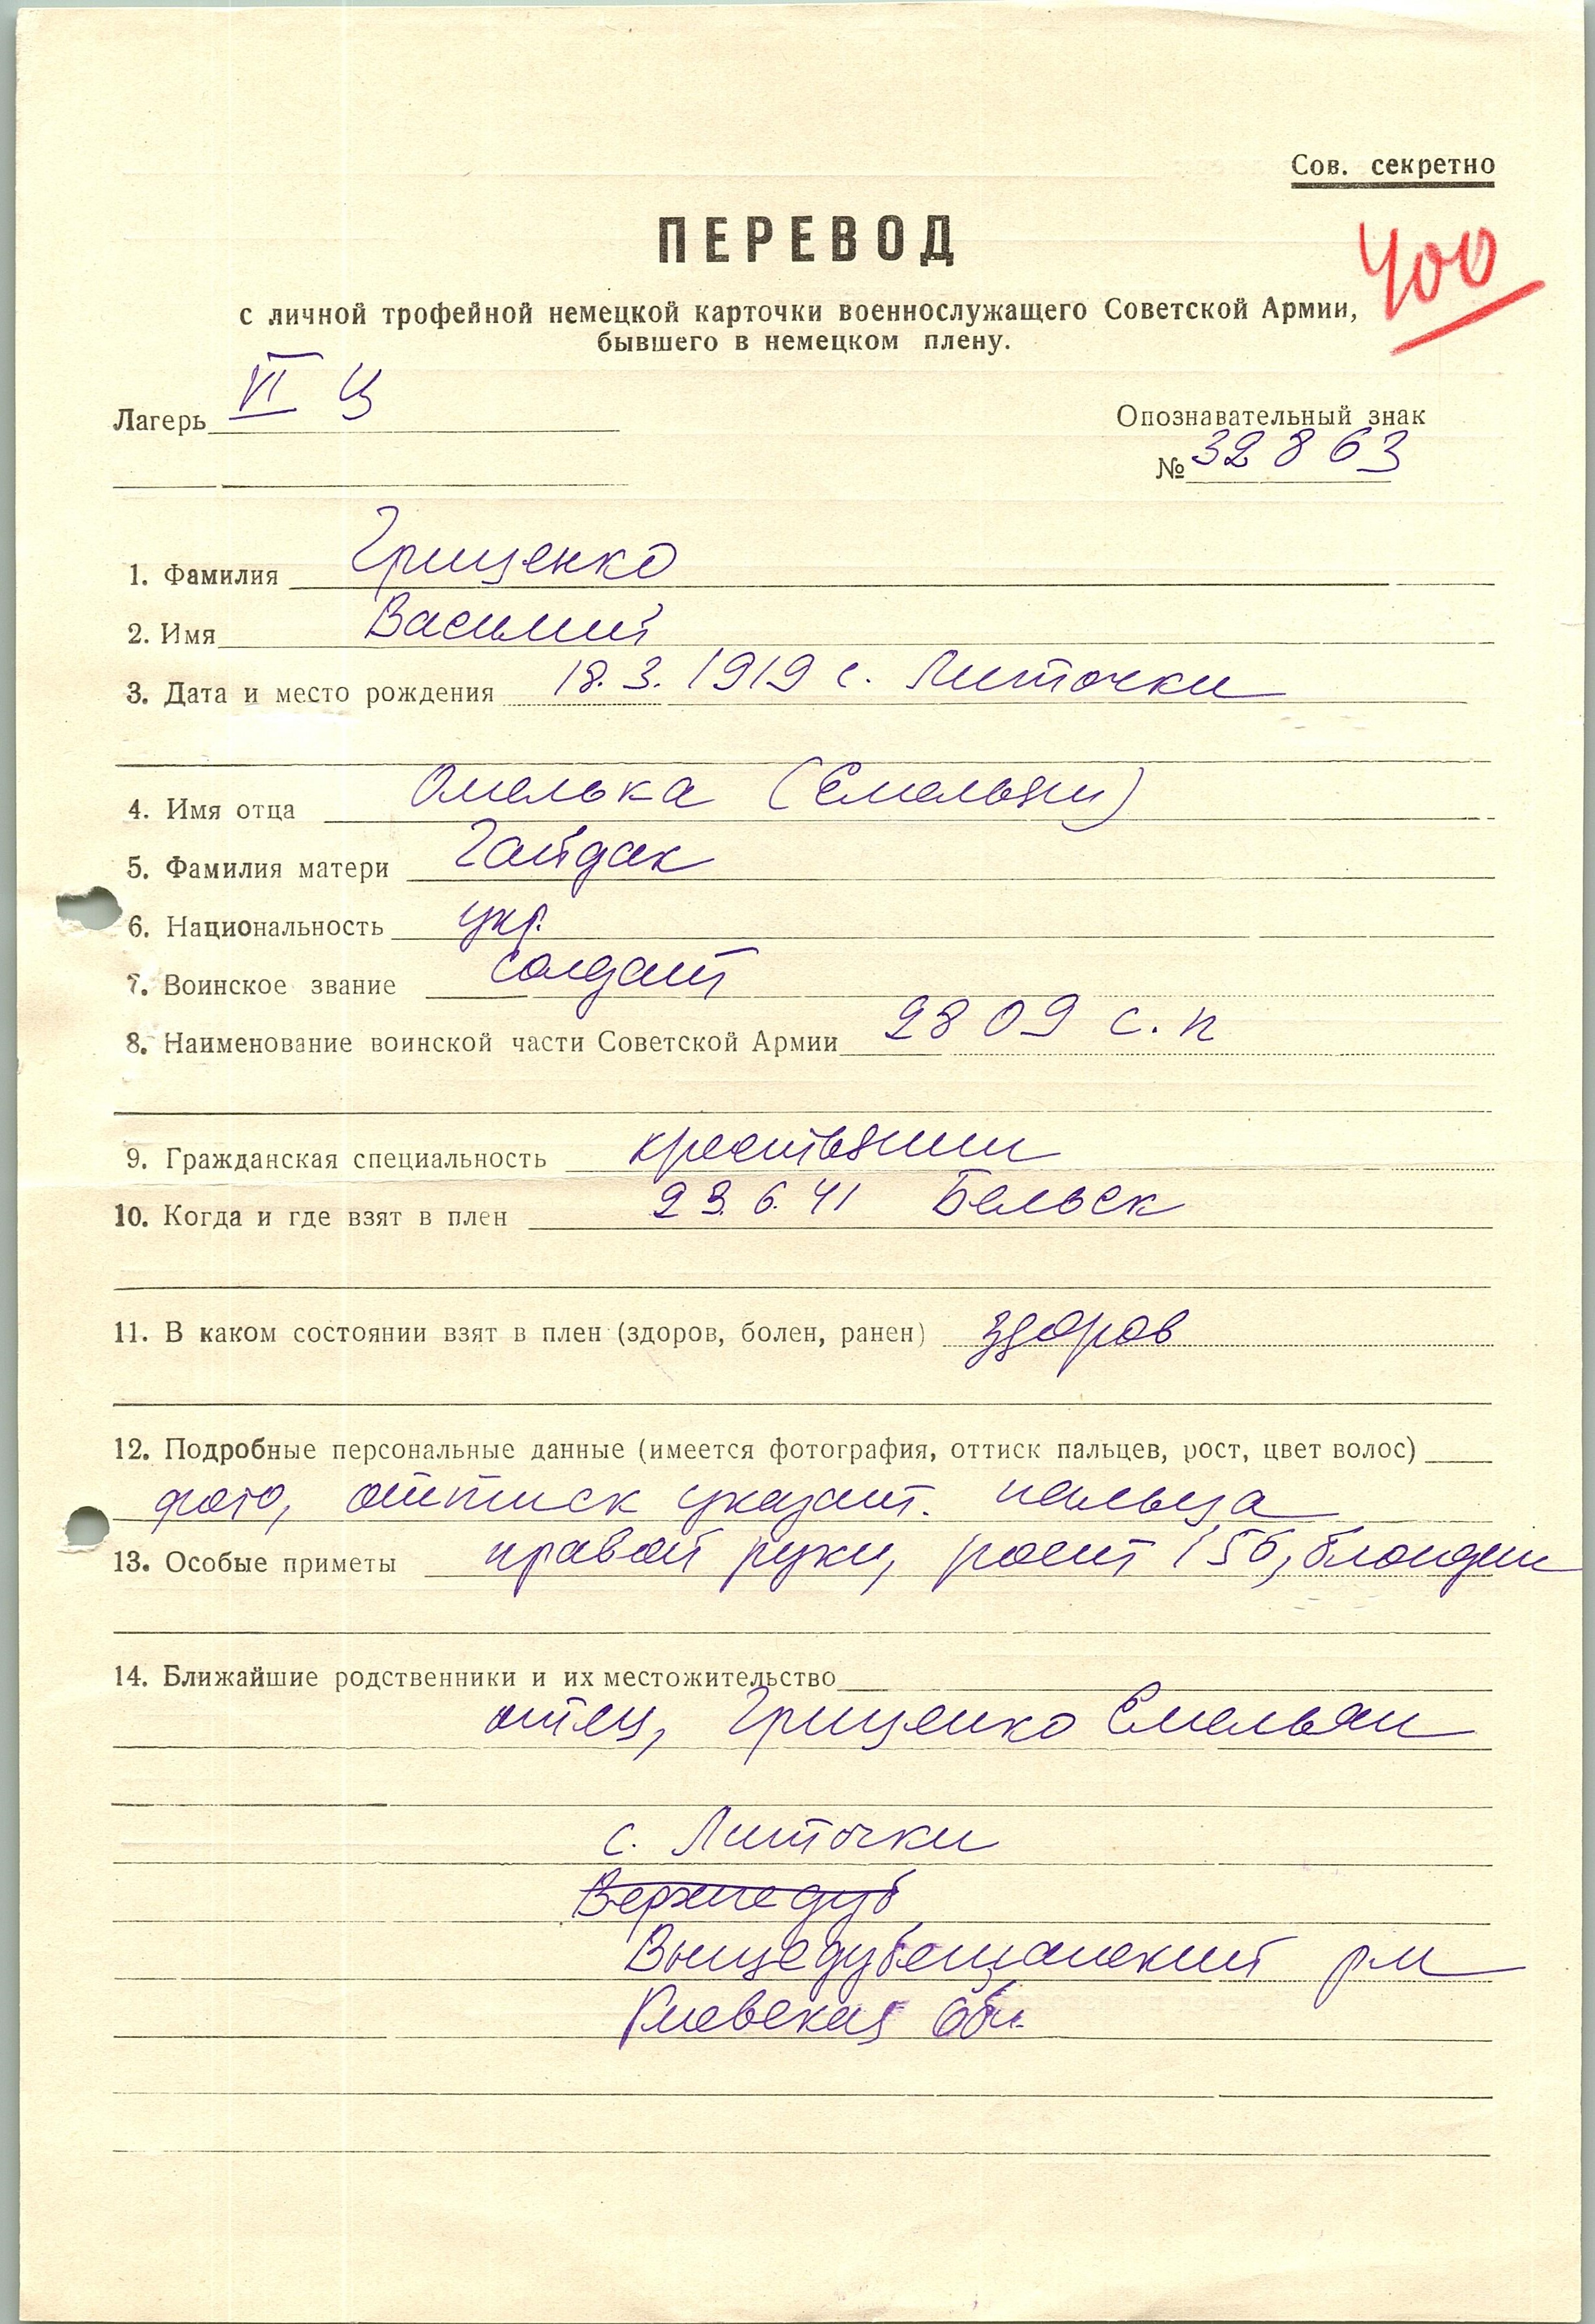 Сов. секретно
ПЕРЕВОД
400
с личной трофейной немецкой карточки военнослужащего Советской Армии,
бывшего в немецком плену.
Лагерь VI Ц
Опознавательный знак
№ 32863
1. Фамилия Грищенко
2. Имя Василий
3. Дата и место рождения 18.3.1919 с. Литочки
4. Имя отца Омелька (Емельян)
5. Фамилия матери Гайдак
6. Национальность укр.
7. Воинское звание солдат
8. Наименование воинской части Советской Армии 2809 с.п
9. Гражданская специальность крестьянин
10. Когда и где взят в плен 23.6.41 Бельск
11. В каком состоянии взят в плен (здоров, болен, ранен) здоров
12. Подробные персональные данные (имеется фотография, оттиск пальцев, рост, цвет волос)
фото, оттиск указат. пальца
13. Особые приметы правой руки, рост 156, блондин
14. Ближайшие родственники и их местожительство
отец, Грищенко Емельян
с. Литочки
Верхнедуб
Вищедубечанский р-н
Киевская обл.